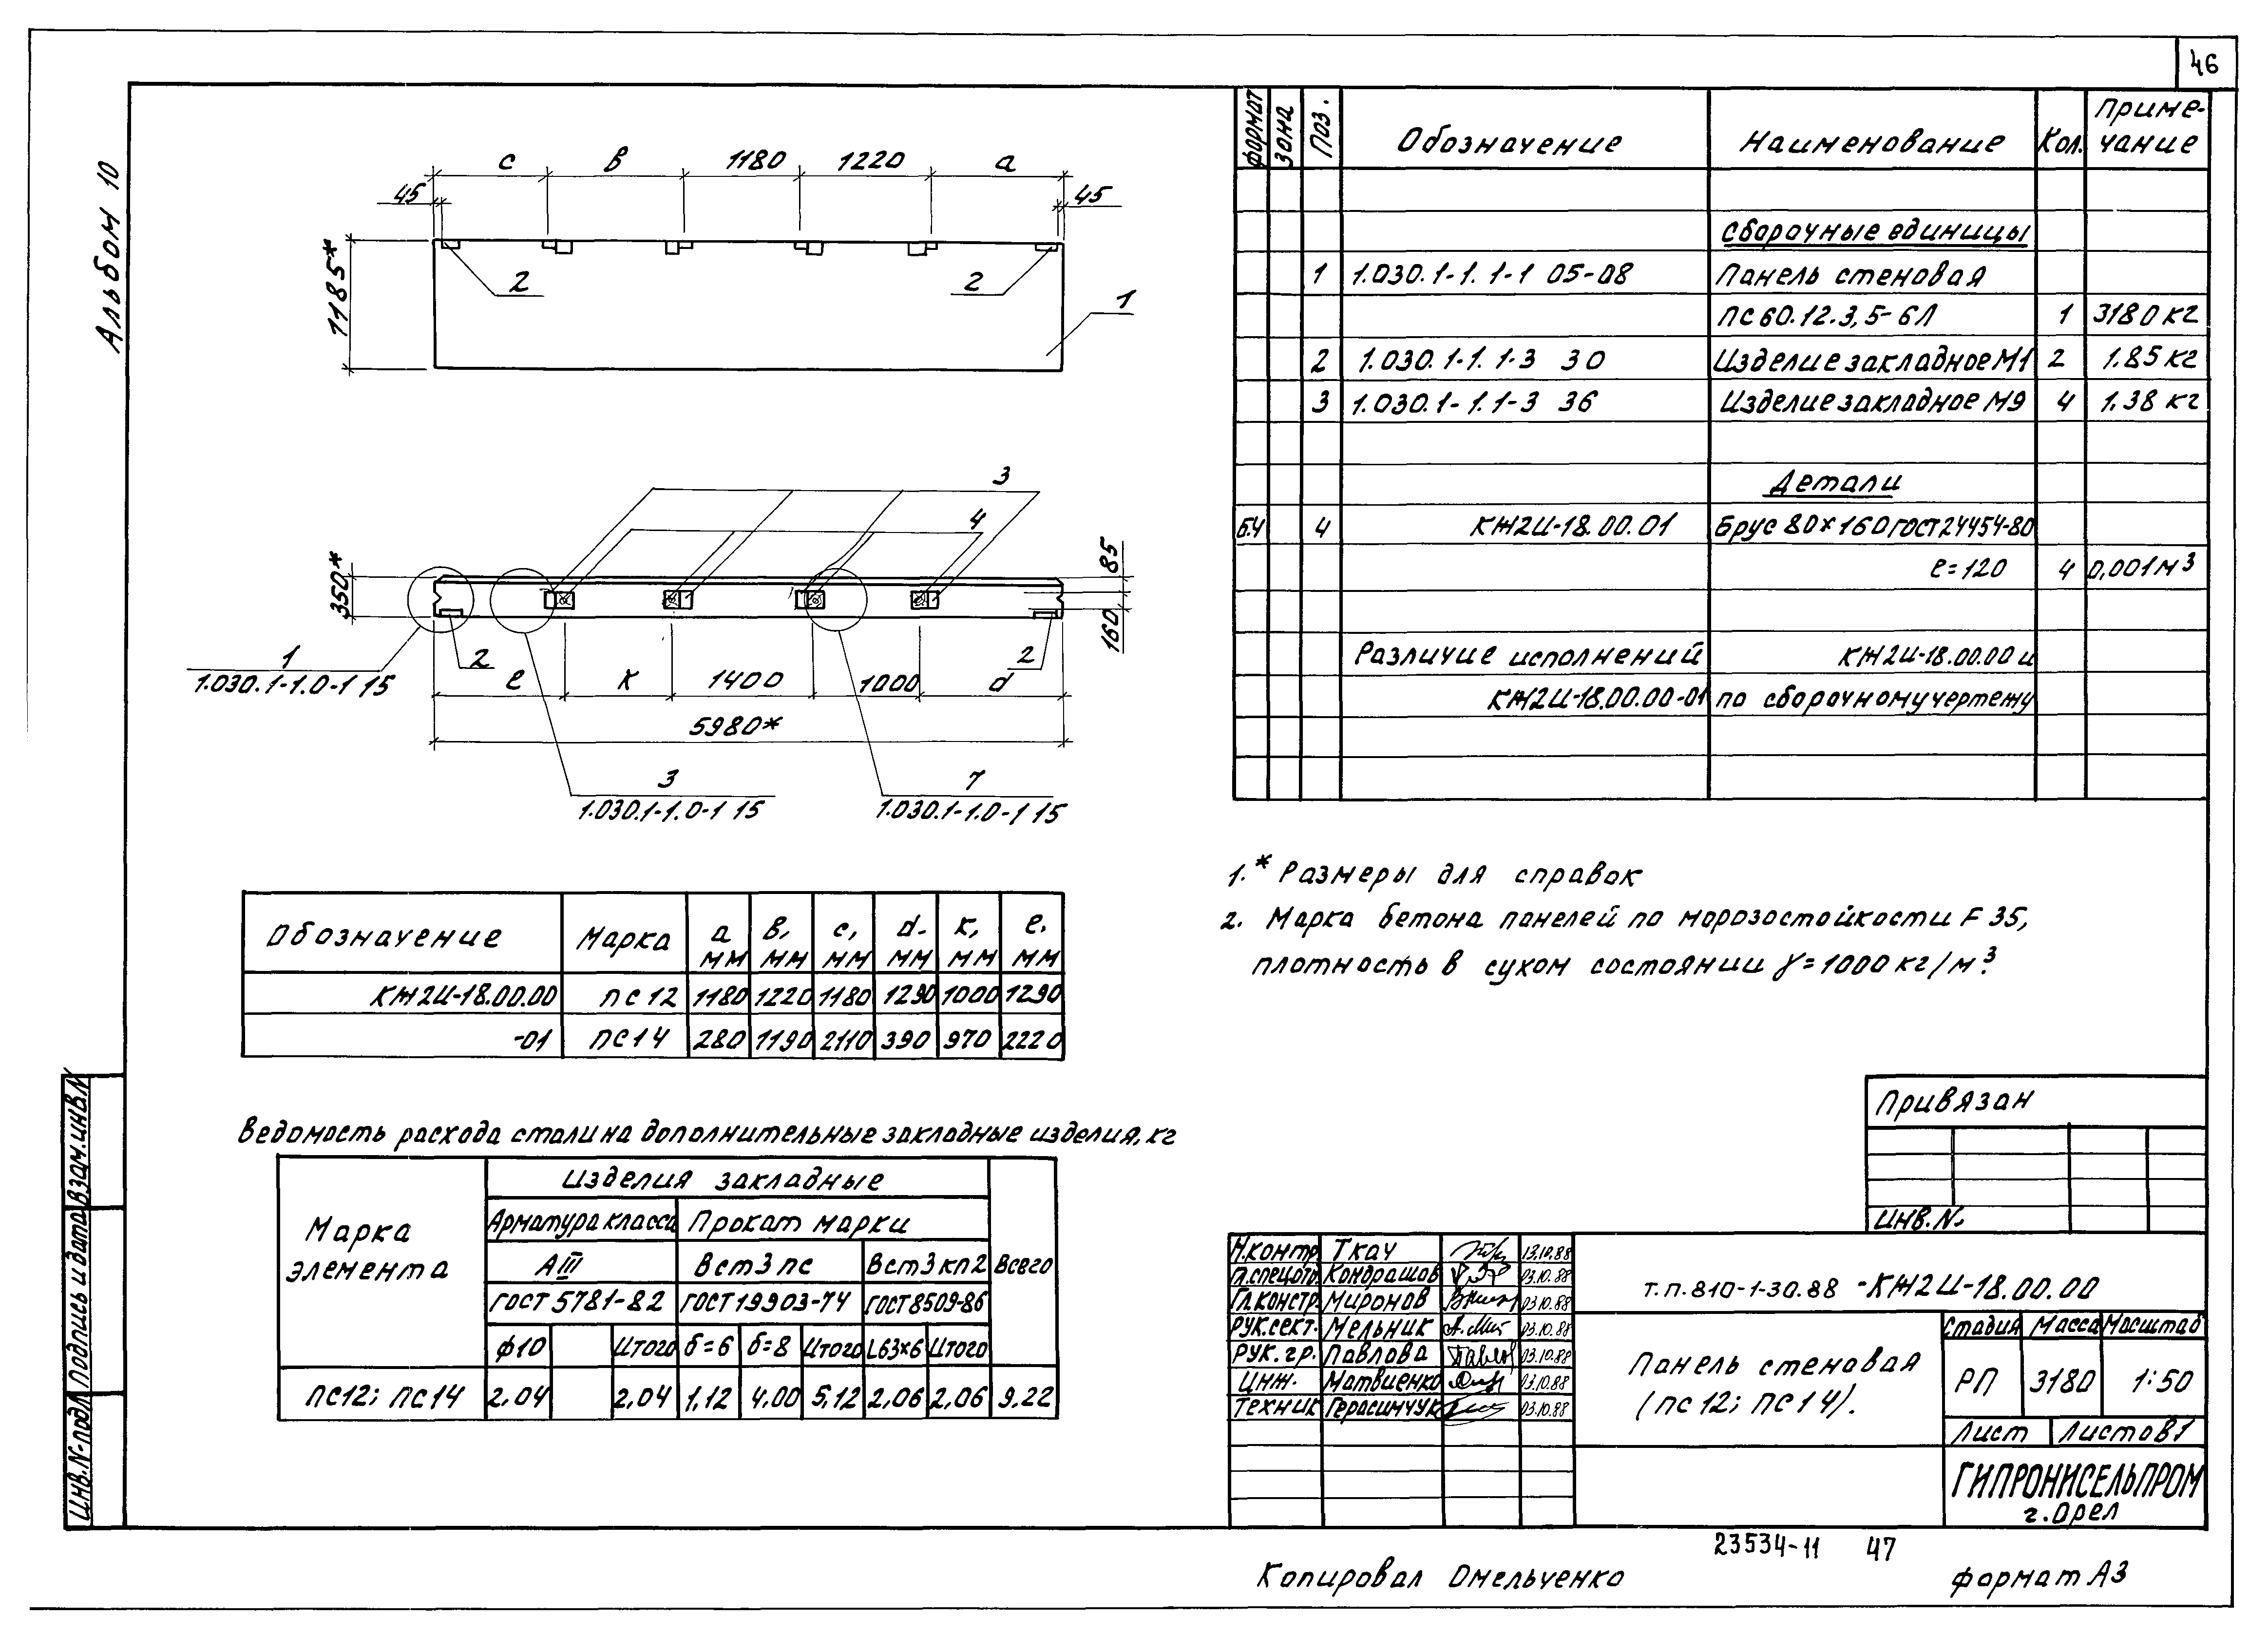 46
Альбом 10
с в 1180 1220 а
45 45
1185*
2 2 1
3
4
350*
85
160
1
1.030.1-1.0-1 15
2 2
е к 1400 1000 d
5980*
3
1.030.1-1.0-1 15
7
1.030.1-1.0-1 15
Формат Зона Поз. Обозначение Наименование Кол. Приме-
чание
Сборочные единицы
1 1.030.1-1. 1-1 05-08 Панель стеновая
ПС60.12.3,5-6Л 1 3180 кг
2 1.030.1-1. 1-3 30 Изделие закладное М1 2 1.85 кг
3 1.030.1-1.1-3 36 Изделие закладное М9 4 1.38 кг
Детали
Б.Ч 4 КЖ2И-18.00.01 Брус 80×160 ГОСТ 24454-80
е=120 4 0,001 м³
Различие исполнений КЖ2И-18.00.00 и
КЖ2И-18.00.00-01 по сборочному чертежу
1.* Размеры для справок
2. Марка бетона панелей по морозостойкости F 35,
плотность в сухом состоянии γ=1000 кг/м³.
Обозначение Марка а мм в, мм с, мм d. мм к, мм е. мм
КЖ2И-18.00.00 ПС12 1180 1220 1180 1290 1000 1290
-01 ПС14 280 1190 2110 390 970 2220
Ведомость расхода стали на дополнительные закладные изделия, кг
Марка элемента Изделия закладные Всего
Арматура класса Прокат марки
АIII Вст3пс Вст3кп2
ГОСТ 5781-82 ГОСТ 19903-74 ГОСТ 8509-86
ф10 Итого δ=6 δ=8 Итого L63×6 Итого
ПС12; ПС14 2,04 2,04 1,12 4,00 5,12 2,06 2,06 9,22
Привязан
Инв.№
Н.контр. Ткач 13.10.88
Гл.спецотд. Кондрашов 03.10.88
Гл.констр. Миронов 03.10.88
Рук.сект. Мельник 03.10.88
Рук.гр. Павлова 03.10.88
Инж. Матвиенко 03.10.88
Техник Герасимчук 03.10.88
т.п.810-1-30.88 -КЖ2И-18.00.00
Панель стеновая
(ПС12; ПС14).
Стадия Масса Масштаб
РП 3180 1:50
Лист Листов 1
ГИПРОНИСЕЛЬПРОМ
г.Орел
Взам.инв.№
Подпись и дата
Инв.№ подл.
23534-11 47
Копировал Омельченко
формат А3